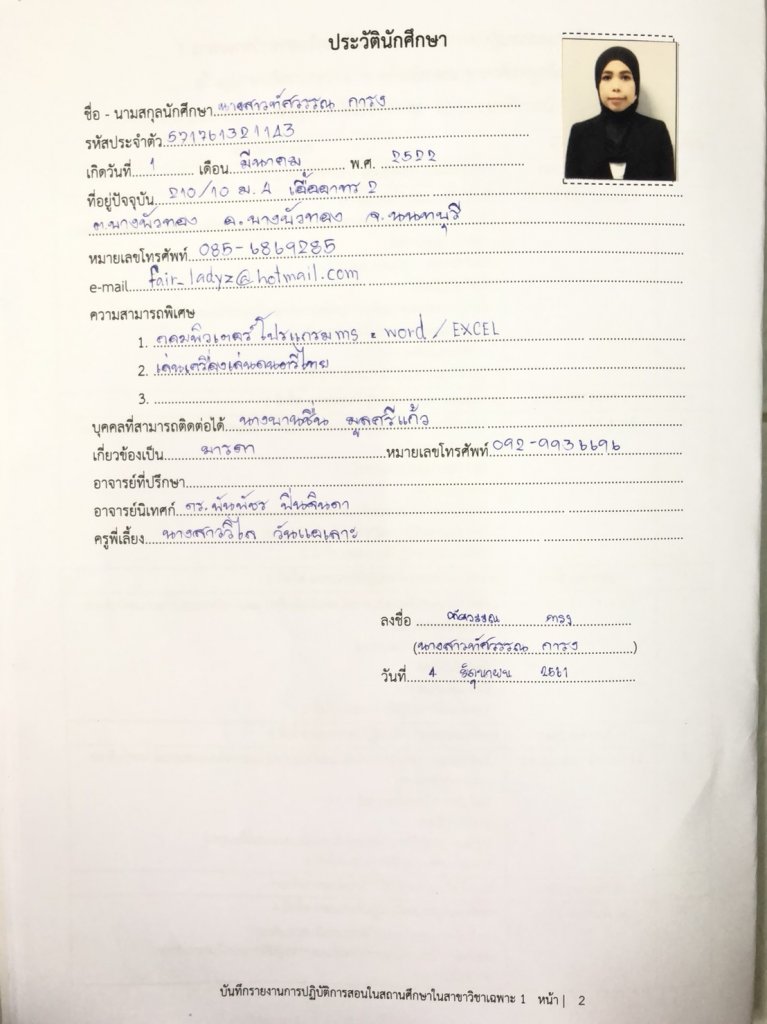 ประวัตินักศึกษา
ชื่อ - นามสกุลนักศึกษา นางสาวทัศวรรณ การง
รหัสประจำตัว 571761321143
เกิดวันที่ 1 เดือน มีนาคม พ.ศ. 2522
ที่อยู่ปัจจุบัน 210/10 ม.4 เอื้ออาทร 2
ต.บางบัวทอง อ.บางบัวทอง จ.นนทบุรี
หมายเลขโทรศัพท์ 085-6869285
e-mail fair_ladyz@hotmail.com
ความสามารถพิเศษ
1. คอมพิวเตอร์ โปรแกรม ms. word / EXCEL
2. เล่นเครื่องเล่นดนตรีไทย
3.
บุคคลที่สามารถติดต่อได้ นางบานชื่น มูลศรีแก้ว
เกี่ยวข้องเป็น มารดา หมายเลขโทรศัพท์ 092-9936696
อาจารย์ที่ปรึกษา
อาจารย์นิเทศก์ ดร.พันพัชร ปิ่นจินดา
ครูพี่เลี้ยง นางสาววิไล วันแอเลาะ
ลงชื่อ ทัศวรรณ การง
(นางสาวทัศวรรณ การง)
วันที่ 4 2561
บันทึกรายงานการปฏิบัติการสอนในสถานศึกษาในสาขาวิชาเฉพาะ 1 หน้า | 2